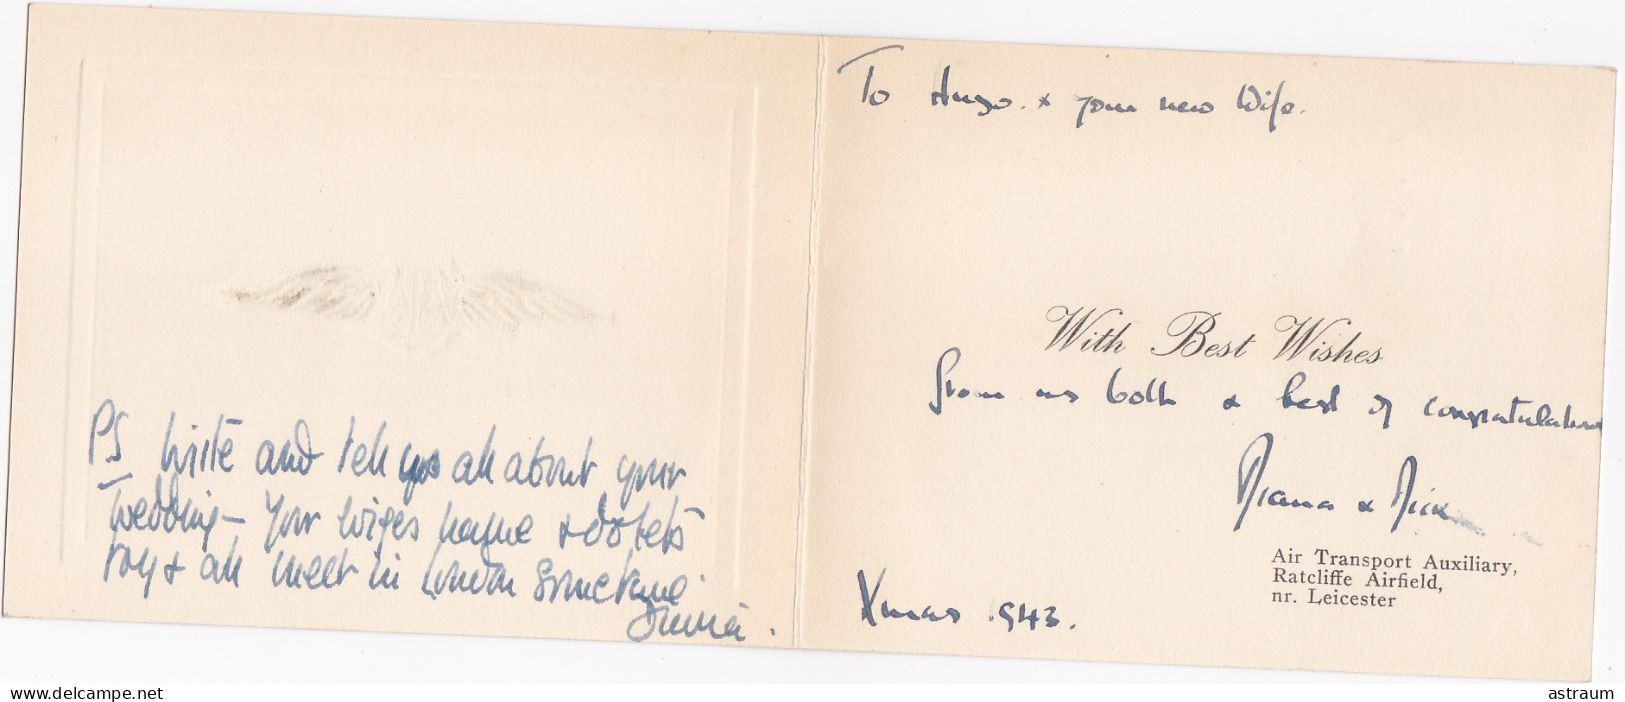 PS Write and tell us all about your
wedding - Your wifes name & do lets
try & all meet in London sometime.
To Hugo. & your new Wife.
With Best Wishes
from us both & best of congratulations
Diana & Dick
Air Transport Auxiliary,
Ratcliffe Airfield,
nr. Leicester
Xmas 1943.
delcampe.net
astraum